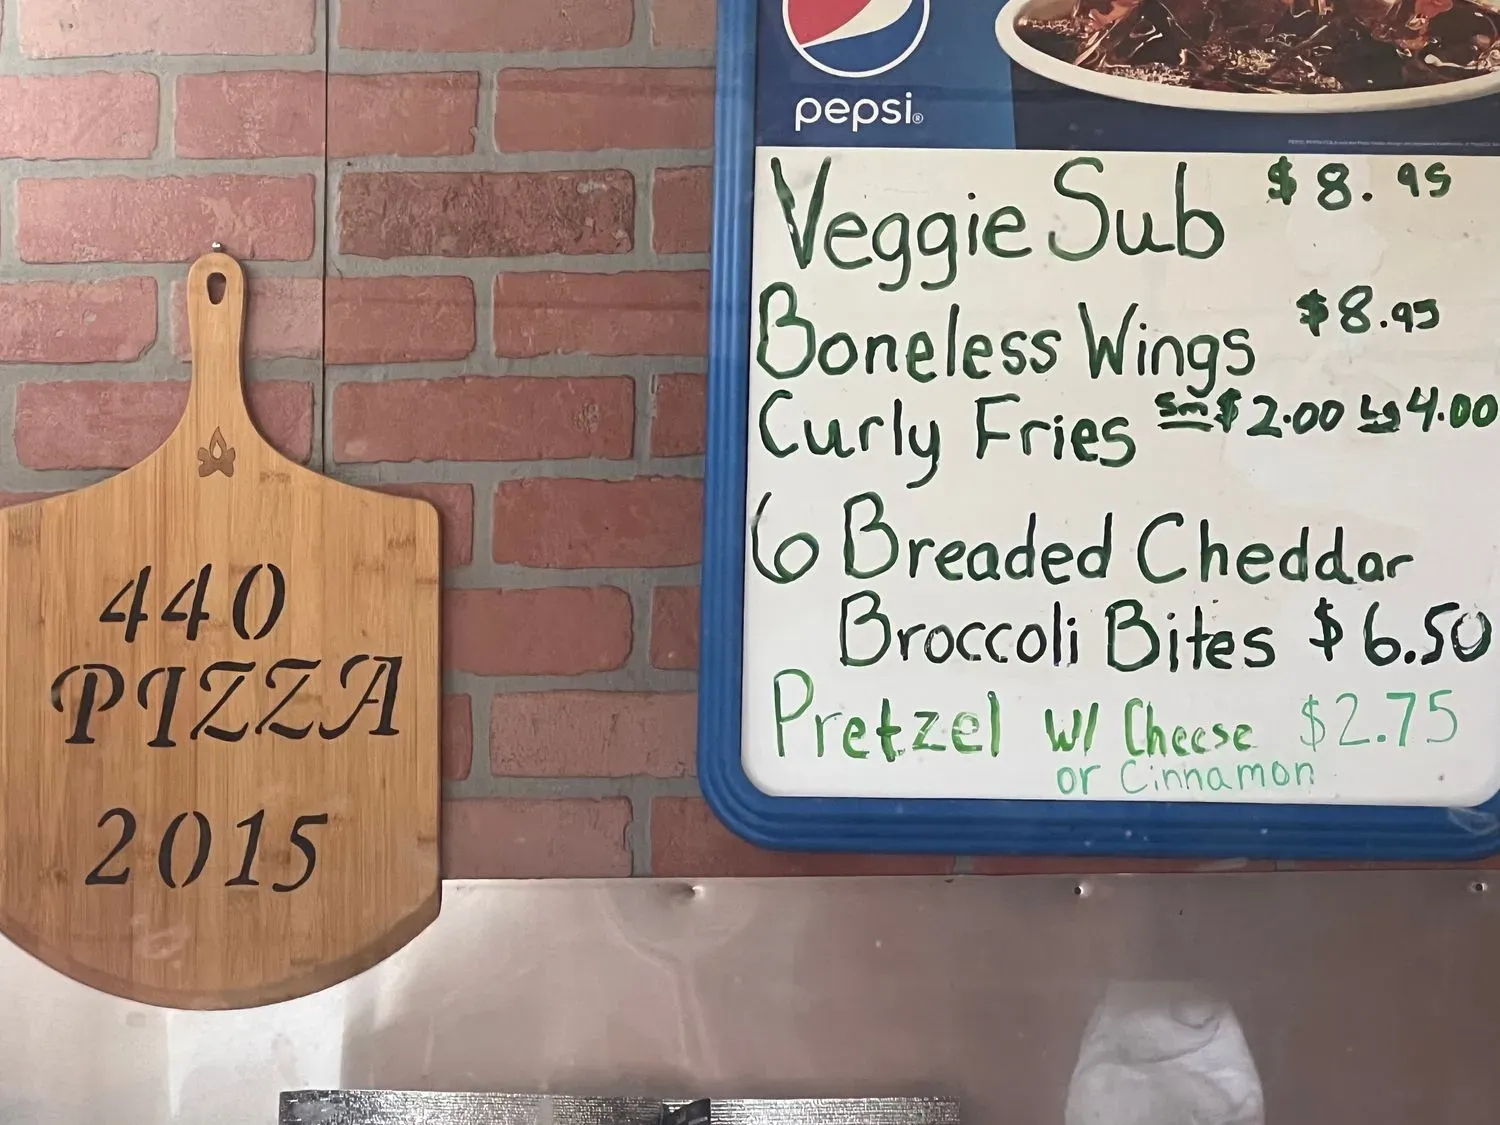 pepsi®
Veggie Sub $8.95
Boneless Wings $8.95
Curly Fries Sm $2.00 Lg 4.00
6 Breaded Cheddar
Broccoli Bites $6.50
Pretzel w/ Cheese $2.75
or Cinnamon
440
PIZZA
2015